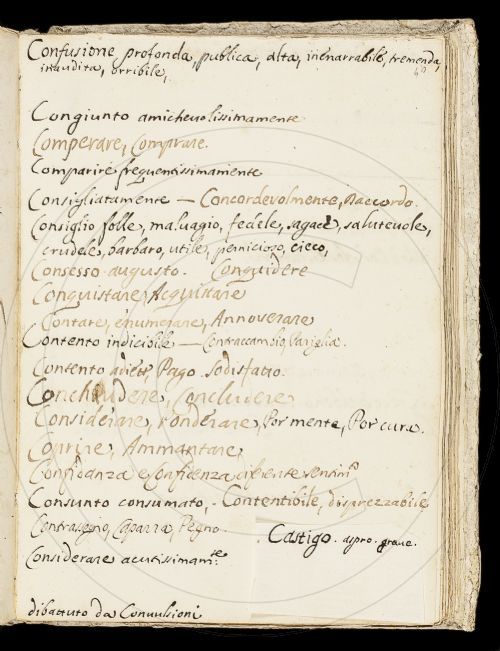 Confusione profonda, publica, alta, inenarrabile, tremenda,
inaudita, orribile,
Congiunto amichevolissimamente
Comperare, Comprare.
Comparire frequentissimamente
Consigliatamente — Concordevolmente, D'accordo.
Consiglio folle, malvagio, fedele, sagace, salutevole,
crudele, barbaro, utile, pernicioso, cieco,
Consesso augusto. Conquidere
Conquistare, Acquistare
Contare, enumerare, Annoverare
Contento indicibile — Contraccambio, Pariglia.
Contento adiett. Pago. Sodisfatto.
Conchiudere, Concludere
Considerare, Ponderare, Por mente, Por cura.
Coprire, Ammantare,
Confidanza e Confidenza
Consunto consumato, - Contentibile, disprezzabile
Contrasegno, Caparra, Pegno.
Castigo. aspro. grave.
Considerare acutissimam.te
dibattuto da Convulsioni